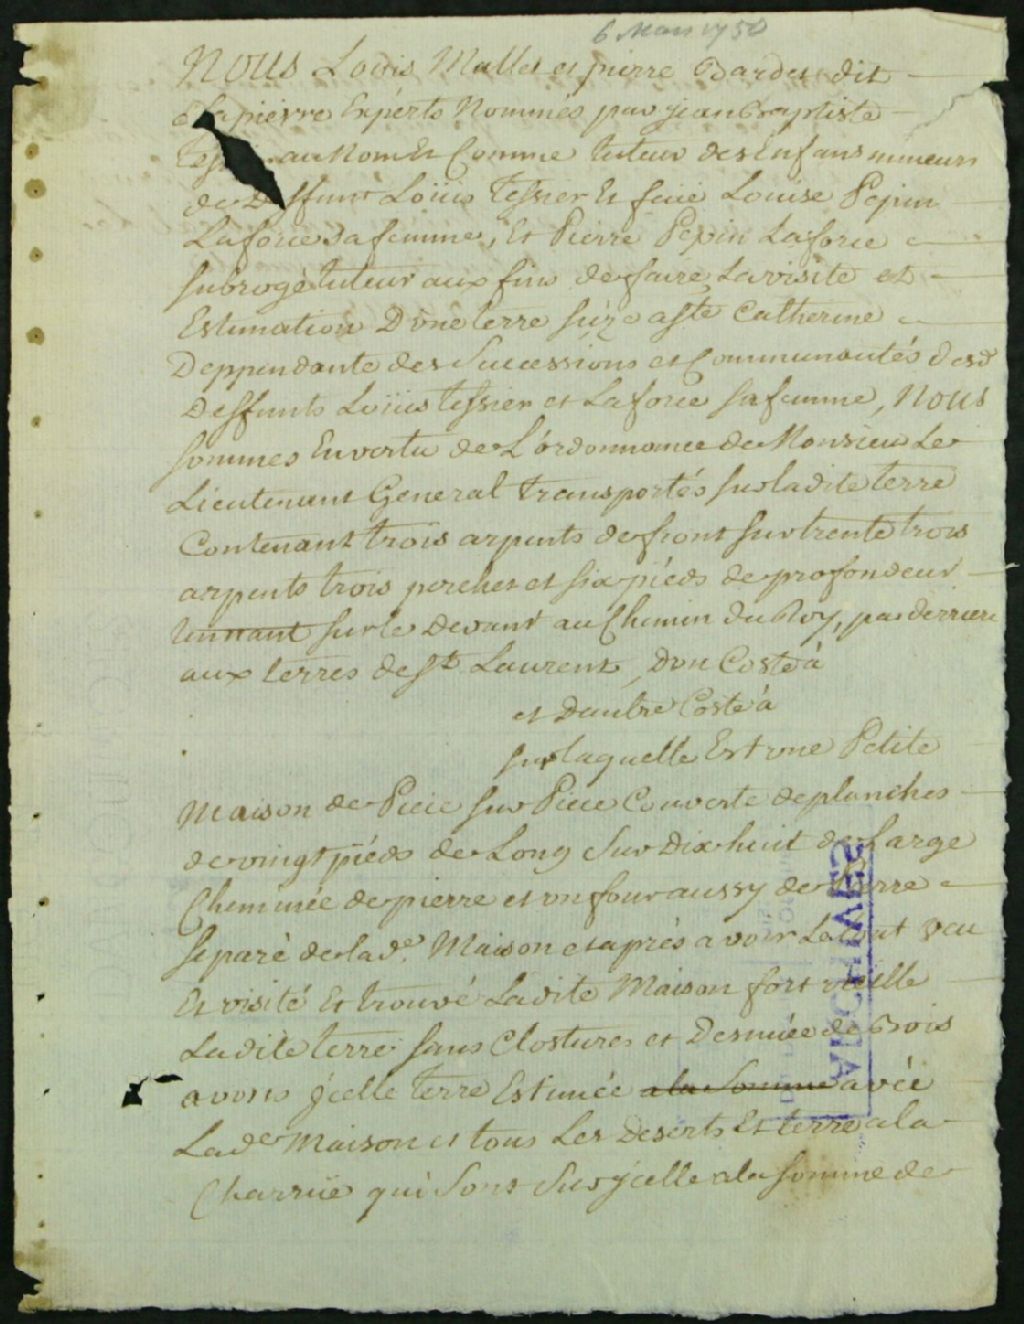 6 Mars 1750
NOUS Louis Mallet et pierre Bardet dit
Lapierre Experts Nommés par jean Baptiste
au Nom Et Comme tuteur des Enfans mineurs
de Deffunt Loüis Tessier Et feüe Louise Pepin
Laforce sa femme, Et Pierre Pepin Laforce
subrogé tuteur aux fins de faire La visite et
Estimation D'une terre size a Ste Catherine
Deppendante des Successions et Communautés desd
Deffunts Loüis tessier et Laforce sa femme, NOUS
sommes En vertu de L'ordonnance de Monsieur Le
Lieutenant General transportés sur ladite terre
Contenant trois arpents de front sur trente trois
arpents trois perches et six pieds de profondeur
tennant sur le Devant au Chemin du Roy, par derriere
aux terres de St. Laurent, D'un Costé à
et D'autre Costé à
sur laquelle Est une Petite
Maison de Piece sur Piece Couverte de planches
de vingt pieds de Long Sur Dix huit de Large
Cheminée de pierre et un four aussy de Pierre
separé de lade. Maison et aprés avoir Le tout veu
Et visité Et trouvé Ladite Maison fort vieille
Ladite terre sans Clostures et Desnuée de Bois
avons jcelle terre Estimée a la Somme avéc
Lade Maison et tous Les Deserts Et terre a la
Charrüe qui Sont Sur jcelle a la somme de
ARCHIVES